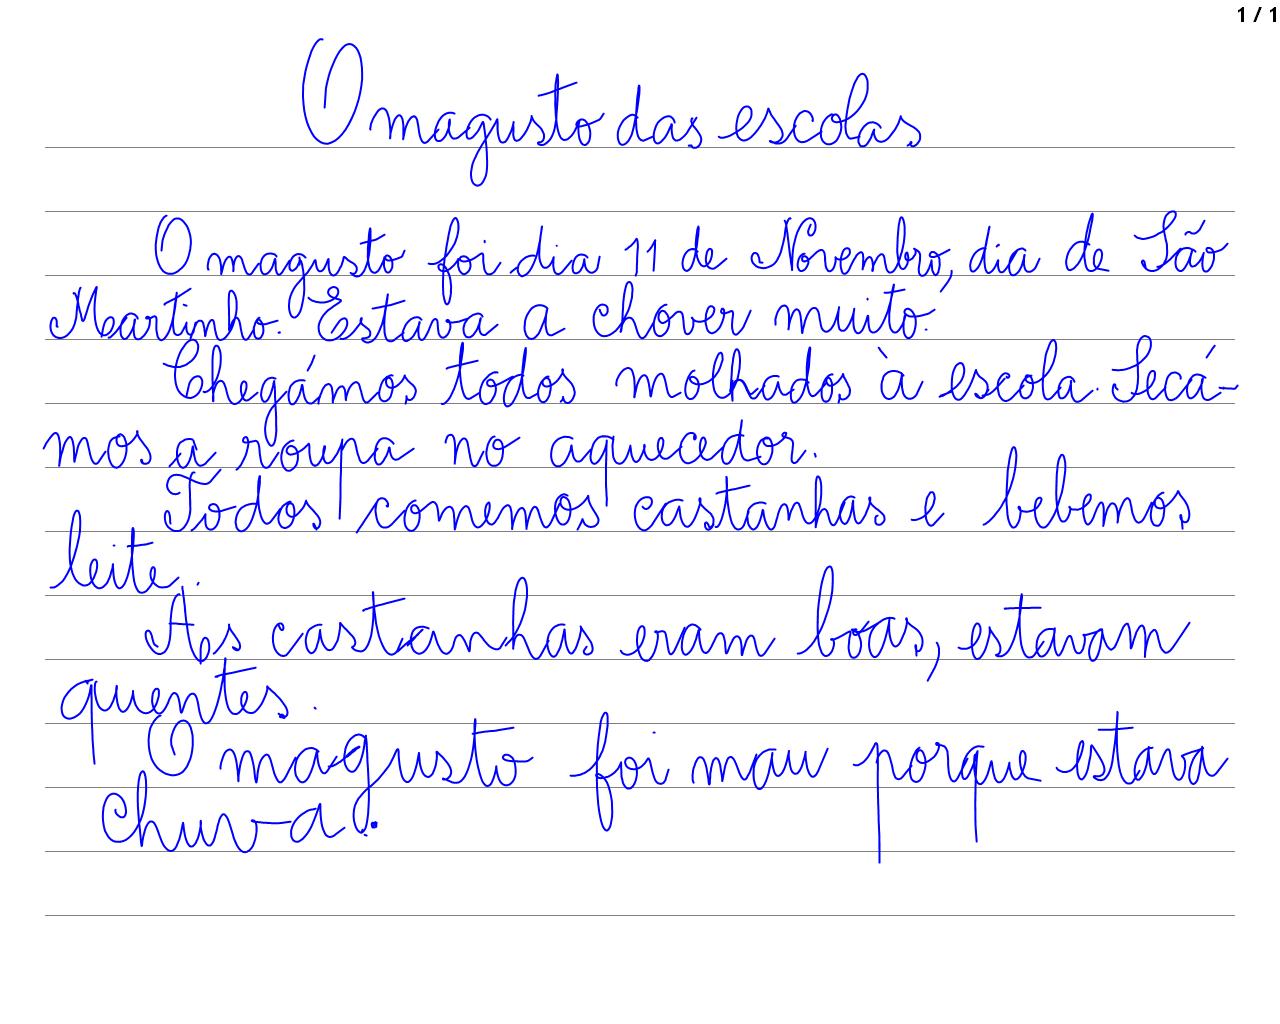 1 / 1
O magusto das escolas
O magusto foi dia 11 de Novembro, dia de São
Martinho. Estava a chover muito.
Chegámos todos molhados à escola. Secá-
mos a roupa no aquecedor.
Todos comemos castanhas e bebemos
leite.
As castanhas eram boas, estavam
quentes.
O magusto foi mau porque estava
chuva.